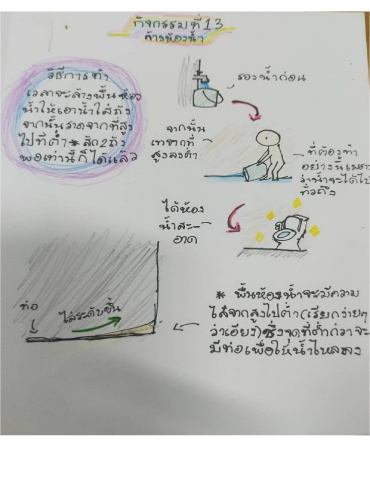 กิจกรรมที่ 13
ล้างห้องน้ำ
วิธีการทำ
เวลาจะล้างพื้นห้อง
น้ำให้เอาน้ำใส่ถัง
จากนั้นราดจากที่สูง
ไปที่ต่ำ* สัก2ถัง
พอเท่านี้ก็ได้แล้ว
รองน้ำก่อน
จากนั้น
เทจากที่
สูงลงต่ำ
ที่ต้องทำ
อย่างนี้เพราะ
ว่าน้ำจะได้ไป
ทั่วถึง
ได้ห้อง
น้ำสะ-
อาด
ท่อ
ไล่ระดับขึ้น
* พื้นห้องน้ำจะมีความ
ไล่จากสูงไปต่ำ(เรียกง่ายๆ
ว่าเอียง)ซึ่งจุดที่ต่ำกว่าจะ
มีท่อเพื่อให้น้ำไหลลง